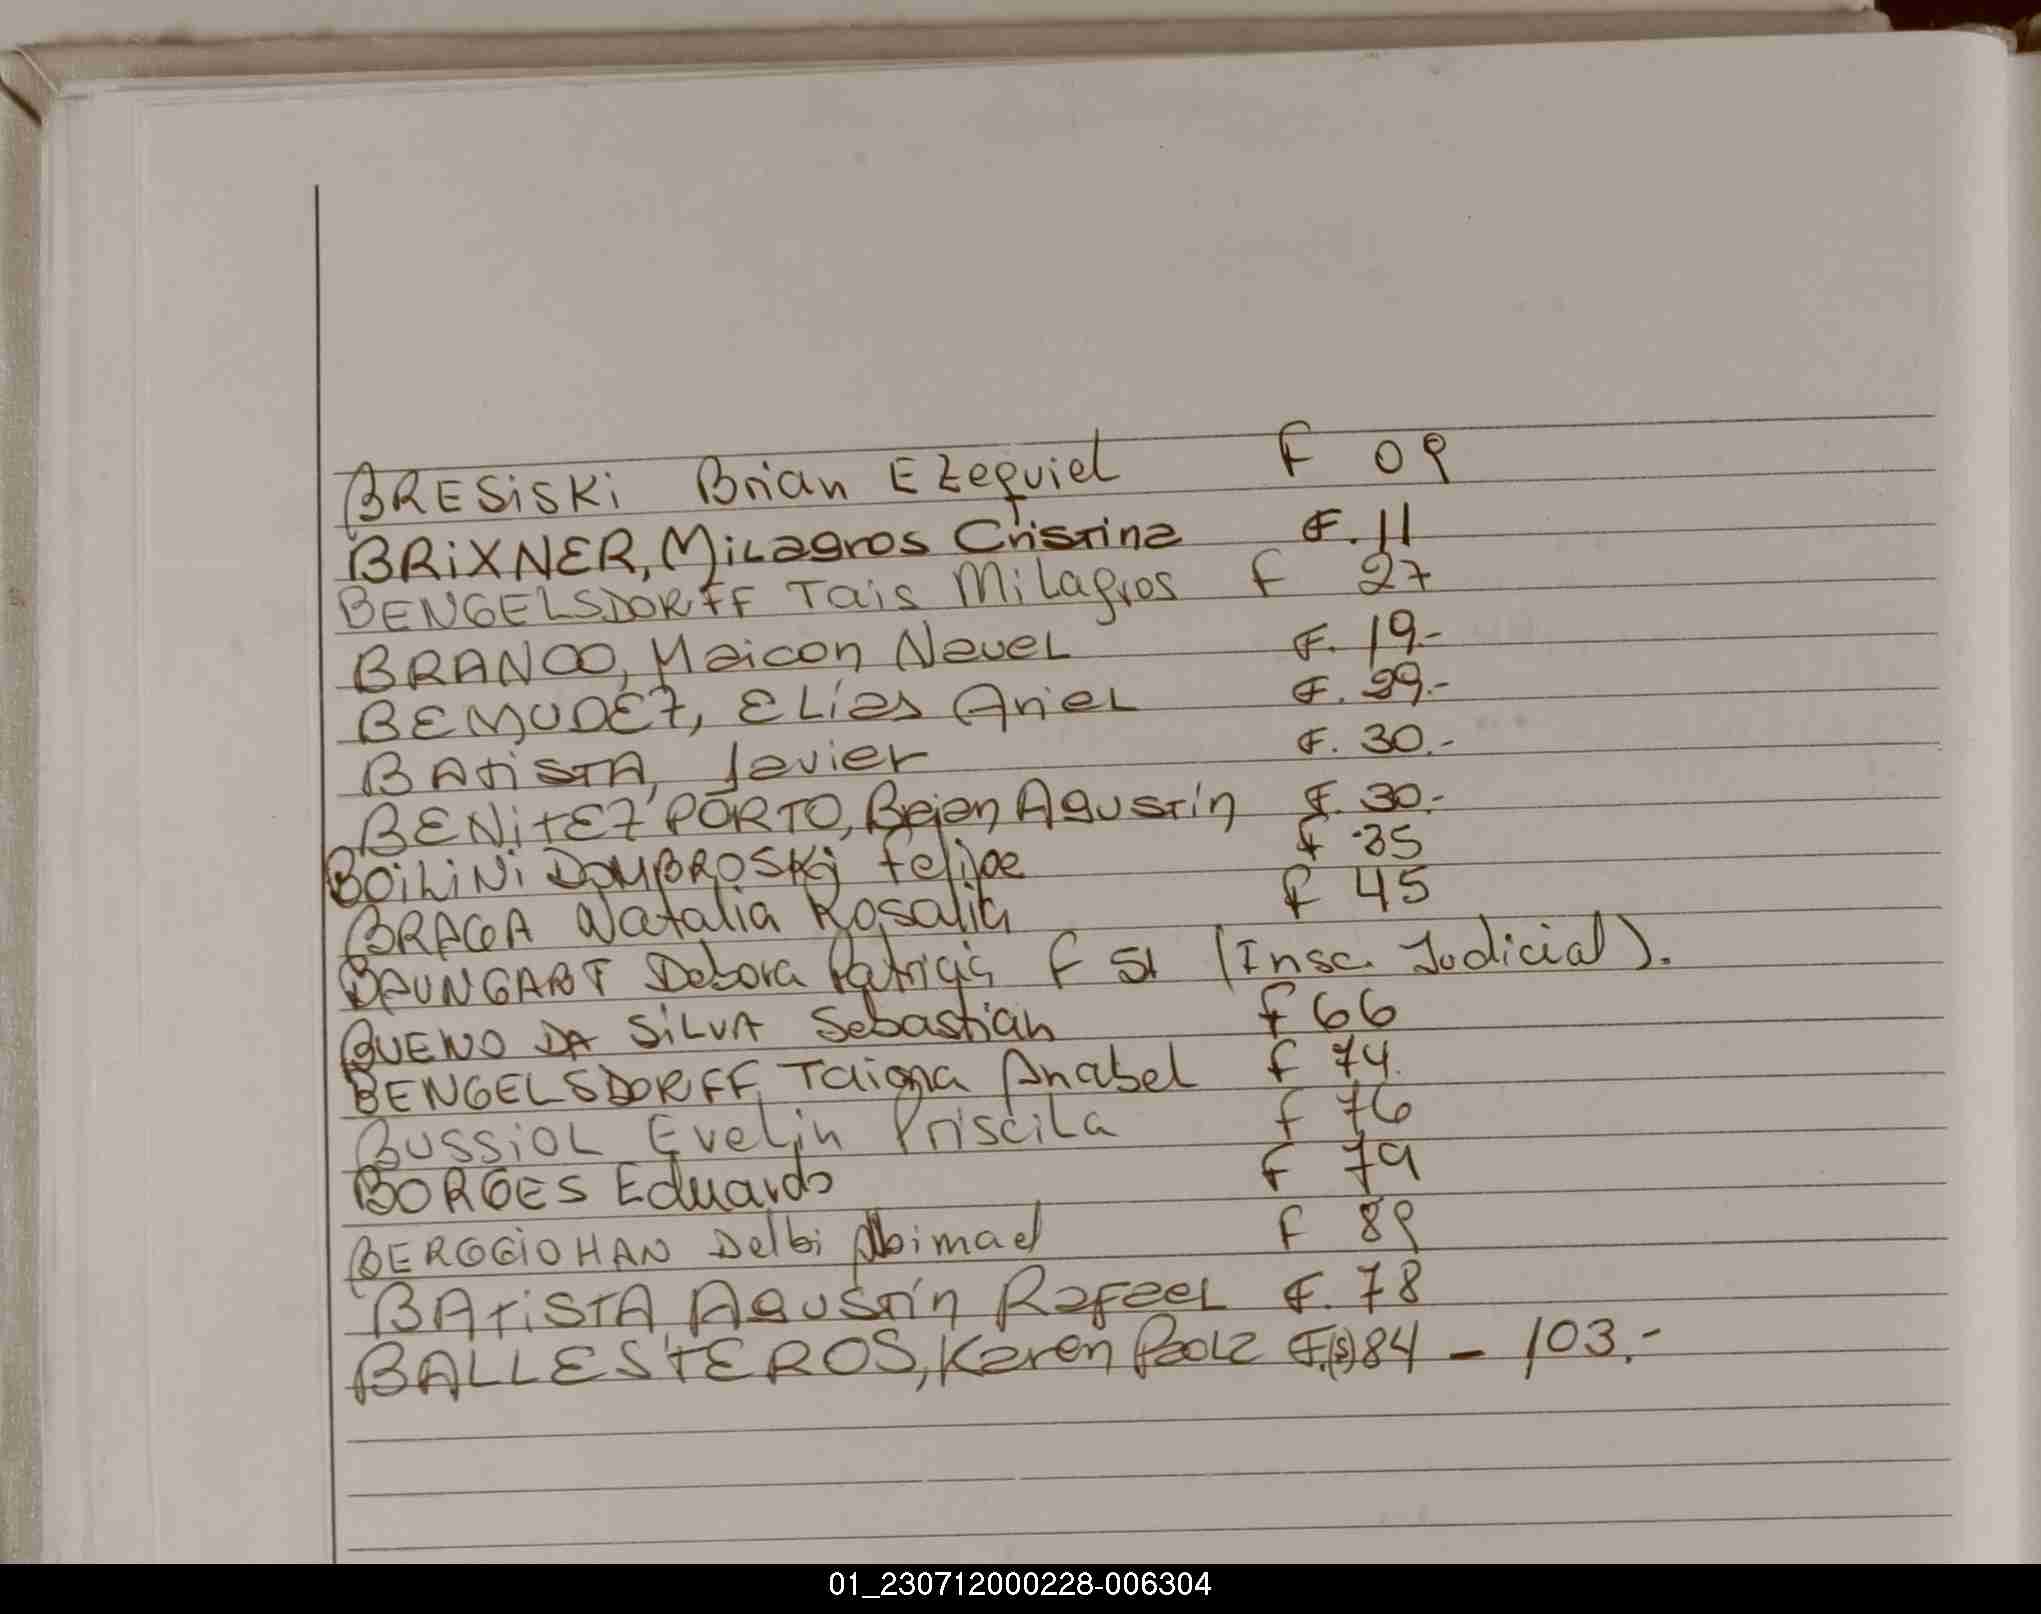 BRESiSKi Brian Ezequiel F 09
BRiXNER, Milagros Cristina F. 11
BENGELSDORFF Tais Milagros F 27
BRANCO, Maicon Nauel F. 19.-
BEMUDEZ, Elías Ariel F. 29.-
BATiSTA, Javier F. 30.-
BENiTEZ PORTO, Brian Agustín F. 30.-
BOiLiNi DOMBROSKi Felipe F 35
BRAGA Natalia Rosalia F 45
BAUNGART Debora Patricia F 51 (Insc. Judicial).
BUENO DA SiLVA Sebastian F 66
BENGELSDORFF, Taiana Anabel F 74.
BUSSiOL Evelin Priscila F 76
BORGES Eduardo F 79
BERGGIOHAN Delbi Abimael F 89
BATiSTA Agustín Rafael F. 78
BALLESTEROS, Karen Paola F.(s) 84 - 103.-
01_230712000228-006304